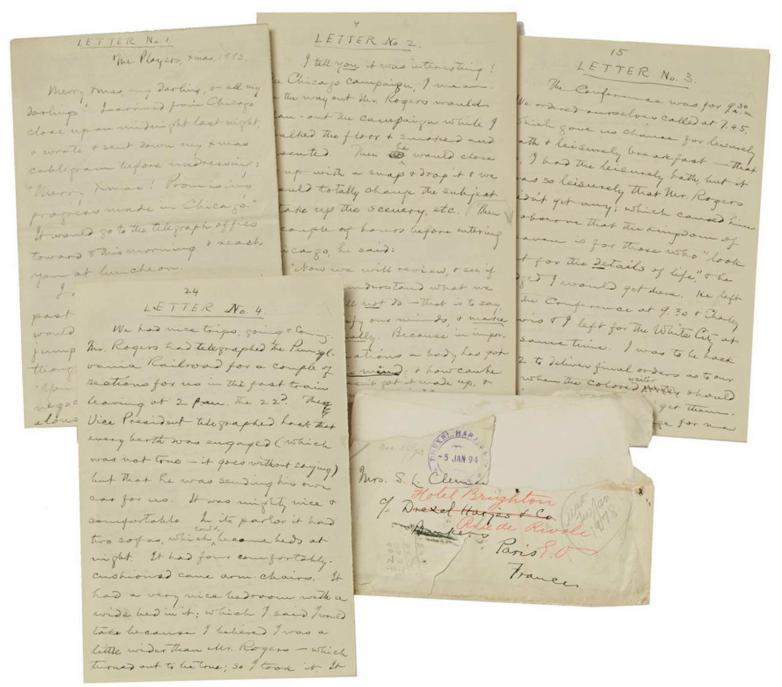 LETTER No. 1.
The Players, Xmas, 1893.
Merry Xmas, my darling, & all my
darlings! I arrived from Chicago
close upon midnight last night
& wrote & sent down my Xmas
cablegram before undressing:
"Merry Xmas! Promising
progress made in Chicago."
It would go to the telegraph office
toward 8 this morning & reach
you at luncheon.
past
would
jump
though
along
4
LETTER No 2.
I tell you it was interesting!
Chicago campaign, I mean.
the way out Mr. Rogers would
out the campaign while I
walked the floor & smoked and
assented. Then he would close
up with a snap & drop it & we
would totally change the subject
take up the scenery, etc. Then
couple of hours before entering
Chicago, he said:
"Now we will review, & see if
understand what we
not do — that is to say
our minds, & make
Because in impor
a body has got
mind, & how can he
got it made up, &
15
LETTER No. 3.
The Conference was for 9.30
We ordered ourselves called at 7.45,
which gave us chance for leisurely
bath & leisurely breakfast — that
I had the leisurely bath, but it
was so leisurely that Mr. Rogers
didn't get any; which caused him
observe that the kingdom of
heaven is for those who "look
out for the details of life," & he
I would get there. He left
the Conference at 9.30 & Charley
& I left for the White City at
same time. I was to be back
to deliver final orders as to our
when the colored waiter should
get them.
for me
24
LETTER No. 4.
We had nice trips, going & coming.
Mr. Rogers had telegraphed the Pennsyl-
vania Railroad for a couple of
sections for us in the fast train
leaving at 2 p.m. the 22d. The
Vice President telegraphed back that
every berth was engaged (which
was not true — it goes without saying)
but that he was sending his own
car for us. It was mighty nice &
comfortable. In its parlor it had
two sofas, which could become beds at
night. It had four comfortably-
cushioned cane arm chairs. It
had a very nice bedroom with a
wide bed in it; which I said I would
take because I believed I was a
little wider than Mr. Rogers — which
turned out to be true; so I took it. It
-5 JAN 94
Mrs. S. L. Clemens
Hotel Brighton
c/o Drexel Harjes & Co
Rue de Rivoli
Bankers
Paris
France